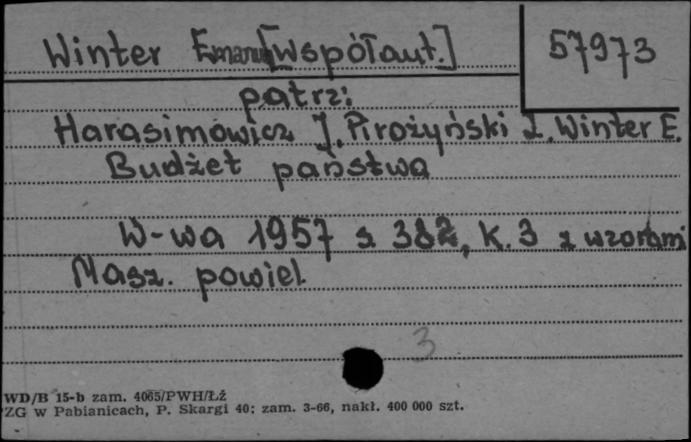 Winter Emanuel [Współaut.]
57973
patrz:
Harasimowicz J. Pirożyński Z. Winter E.
Budżet państwa
W-wa 1957 s. 382, k. 3 z wzorami
Masz. powiel.
3
WD/B 15-b zam. 4065/PWH/Łź
ZG w Pabianicach, P. Skargi 40; zam. 3-66, nakł. 400 000 szt.